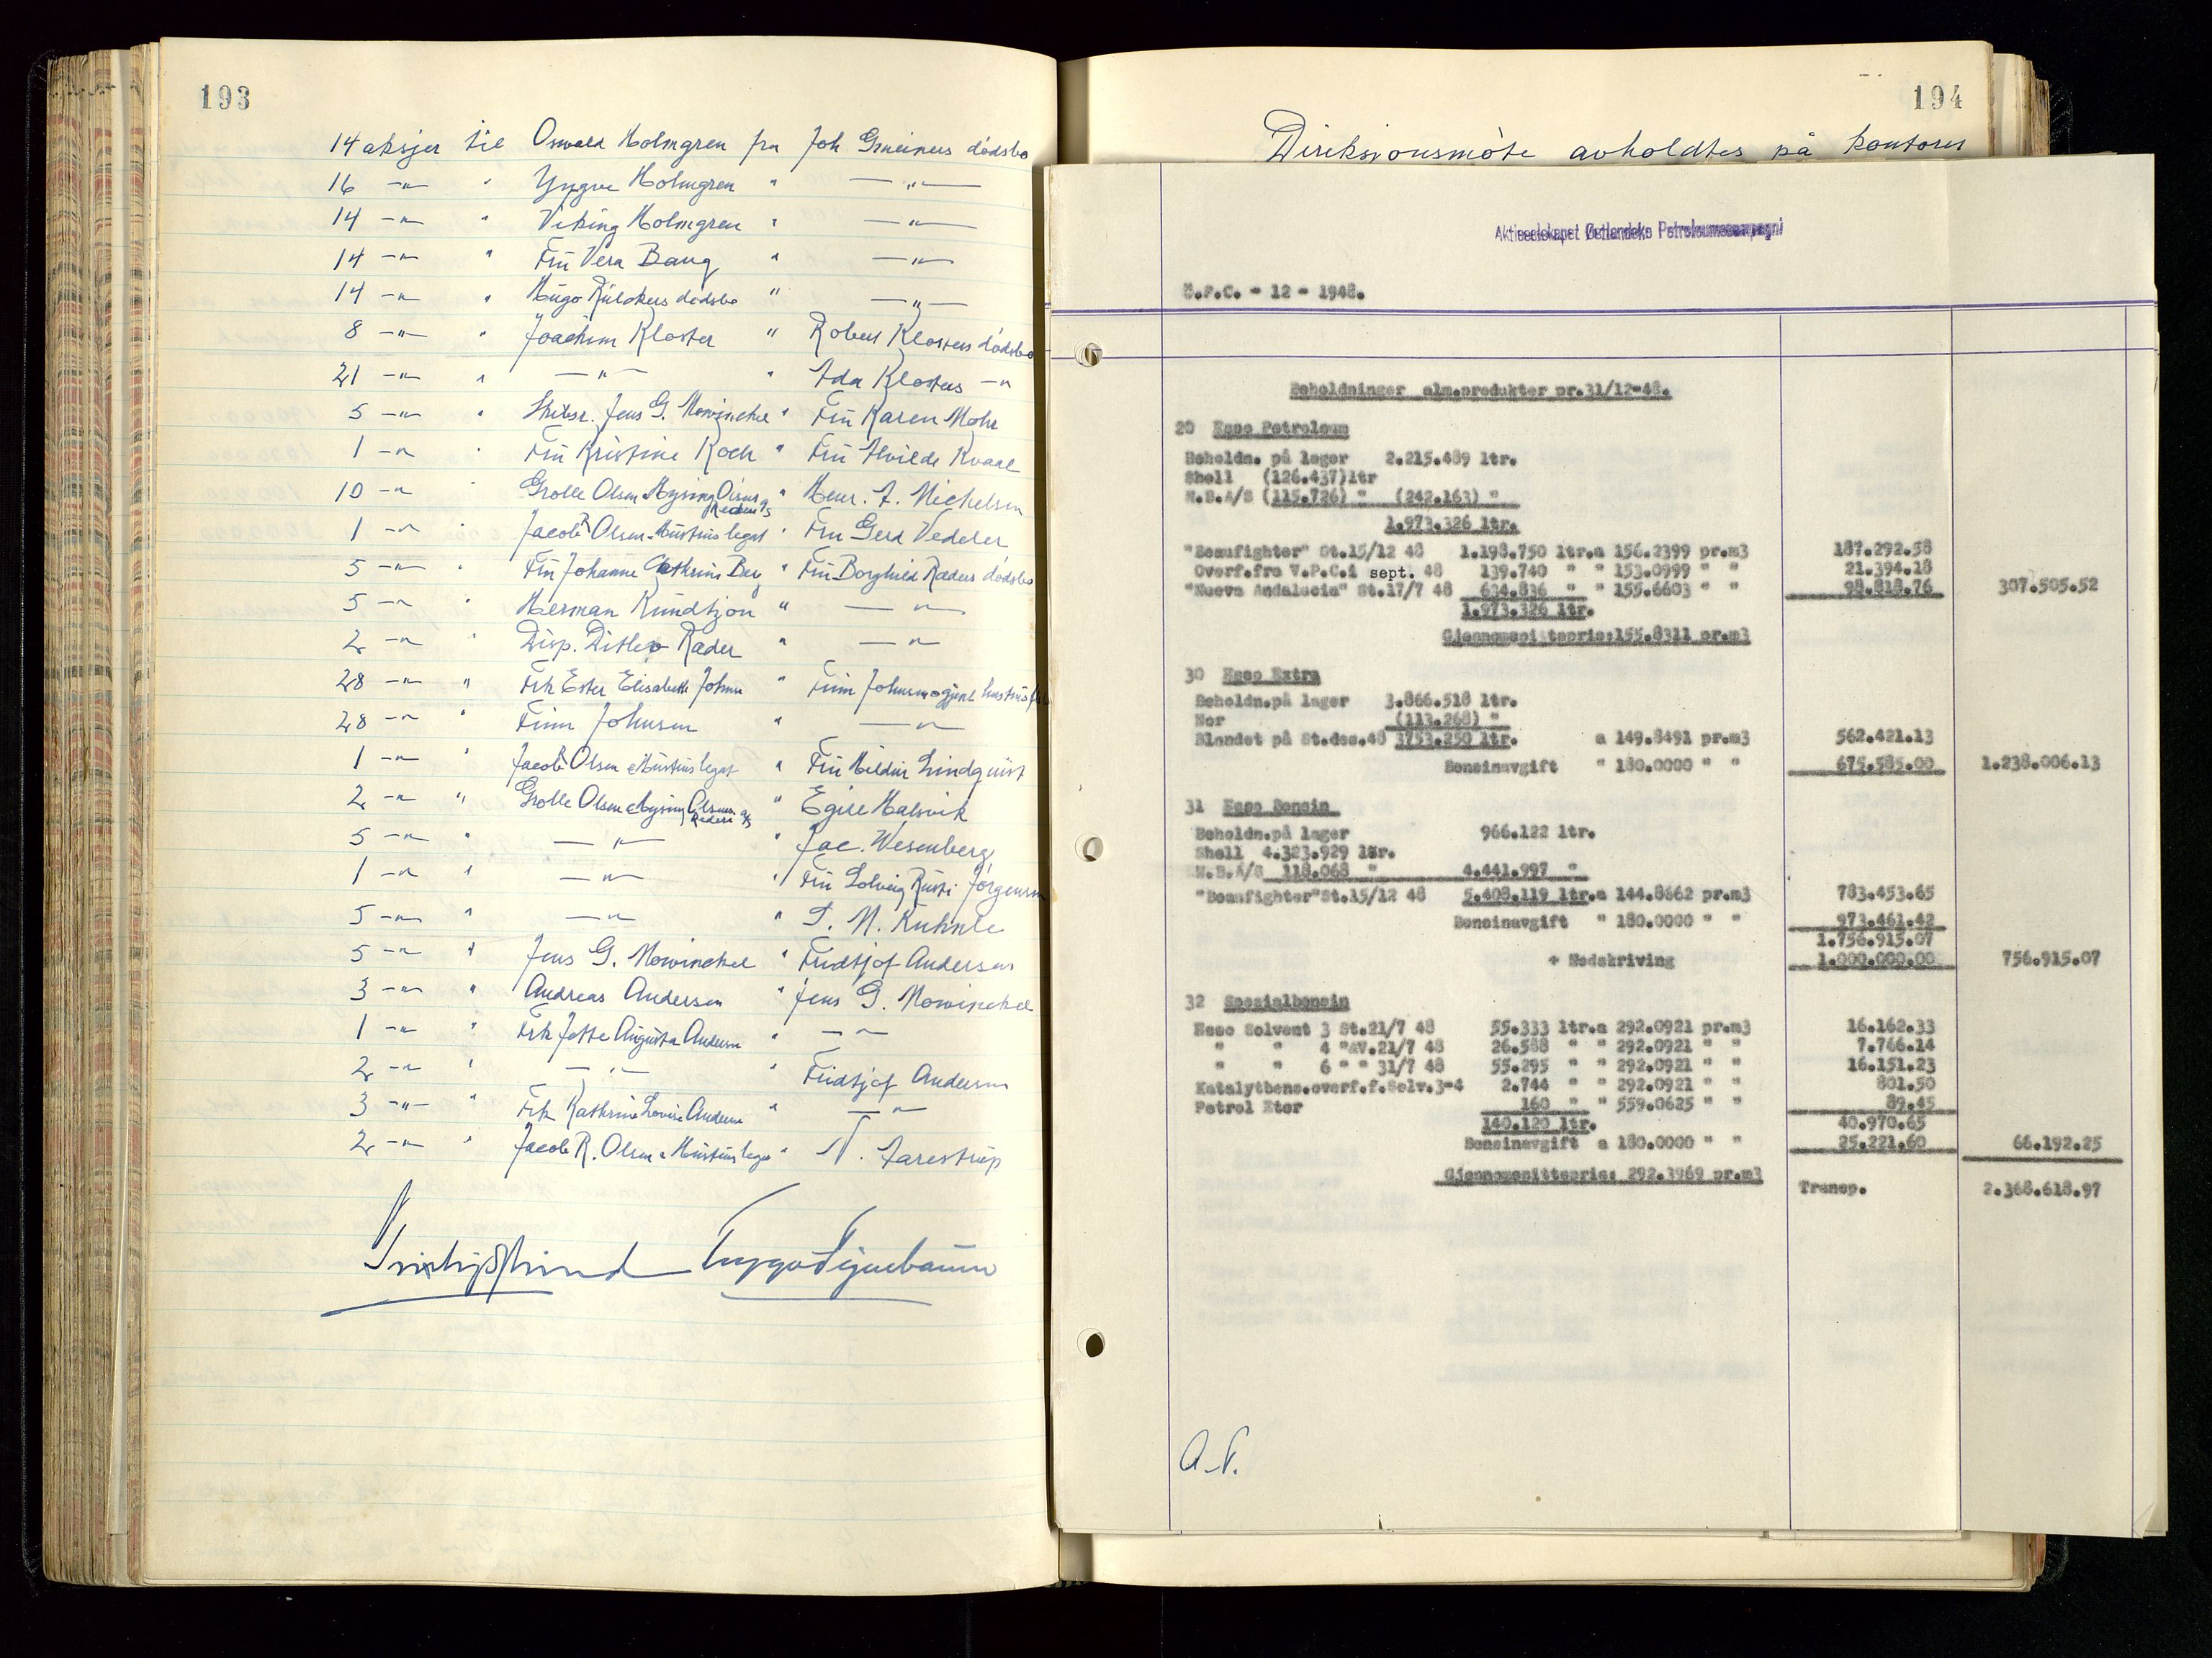 193
14 aksjer til Oswald Holmgren fra Joh. Gmeiners dødsbo
16 -"- " Yngve Holmgren " -"-
14 -"- " Viking Holmgren " -"-
14 -"- " Fru Vera Bang " -"-
14 -"- " Hugo Rülckers dødsbo " -"-
8 -"- " Joachim Kloster " Robert Klosters dødsbo
21 -"- " -"- " Ada Klosters -"-
5 -"- " Skibsr. Jens G. Mowinckel " Fru Karen Mohr
1 -"- " Fru Kristine Koch " Fru Alvilde Kvaal
10 -"- " Grolle Olsen & Hysing Olsens Rederi A/S " Henr. A. Michelsen
1 -"- " Jacob R Olsen & Hustrus legat " Fru Gerd Vedeler
5 -"- " Fru Johanne Cathrine Berg " Fru Borghild Ræders dødsbo
5 -"- " Herman Rundtjon " -"-
2 -"- " Disp. Ditlev Ræder " -"-
28 -"- " Frk Ester Elisabeth Johnsen " Finn Johnsen
28 -"- " Finn Johnsen " -"-
1 -"- " Jacob R Olsen & Hustrus legat " Fru Hildur Lindquist
2 -"- " Grolle Olsen & Hysing Olsens Rederi A/S " Egill Halsvik
5 -"- " -"- " Jac. Wesenberg
1 -"- " -"- " Fru Solveig Rusti Jørgensen
5 -"- " -"- " T. N. Kuhnle
5 -"- " Jens G. Mowinckel " Fridtjof Andersen
3 -"- " Andreas Andersen " Jens G. Mowinckel
1 -"- " Frk Jette Augusta Andersen " -"-
2 -"- " -"- " Fridtjof Andersen
3 -"- " Frk Kathrine Lovise Andersen " -"-
2 -"- " Jacob R. Olsen & Hustrus legat " N. Aarestrup
194
Direksjonsmøte avholdtes på kontoret
Aktieselskapet Østlandske Petroleumscompagni
Ö.P.C. - 12 - 1948.
Beholdninger alm.produkter pr.31/12-48.
20 Esso Petroleum
Beholdn. på lager 2.215.489 ltr.
Shell (126.437)ltr
N.B.A/S (115.726) " (242.163) "
1.973.326 ltr.
"Beaufighter" St.15/12 48 1.198.750 ltr.a 156.2399 pr.m3 187.292.58
Overf.fra V.P.C.i sept. 48 139.740 " " 153.0999 " " 21.394.18
"Nueva Andalucia" St.17/7 48 634.836 " " 155.6603 " " 98.818.76 307.505.52
1.973.326 ltr.
Gjennomsnittspris:155.8311 pr.m3
30 Esso Extra
Beholdn.på lager 3.866.518 ltr.
Nor (113.268) "
Blandet på St.des.48 3753.250 ltr. a 149.8491 pr.m3 562.421.13
Bensinavgift " 180.0000 " " 675.585.00 1.238.006.13
31 Esso Bensin
Beholdn.på lager 966.122 ltr.
Shell 4.323.929 ltr.
N.B.A/S 118.068 " 4.441.997 "
"Beaufighter"St.15/12 48 5.408.119 ltr.a 144.8662 pr.m3 783.453.65
Bensinavgift " 180.0000 " " 973.461.42
1.756.915.07
+ Nedskriving 1.000.000.00 756.915.07
32 Spesialbensin
Esso Solvent 3 St.21/7 48 55.333 ltr.a 292.0921 pr.m3 16.162.33
" " 4 "AV.21/7 48 26.588 " " 292.0921 " " 7.766.14
" " 6 " " 31/7 48 55.295 " " 292.0921 " " 16.151.23
Katalytbens.overf.f.Solv.3-4 2.744 " " 292.0921 " " 801.50
Petrol Eter 160 " " 559.0625 " " 89.45
140.120 ltr. 40.970.65
Bensinavgift a 180.0000 " " 25.221.60 66.192.25
Gjennomsnittspris: 292.3969 pr.m3
Transp. 2.368.618.97